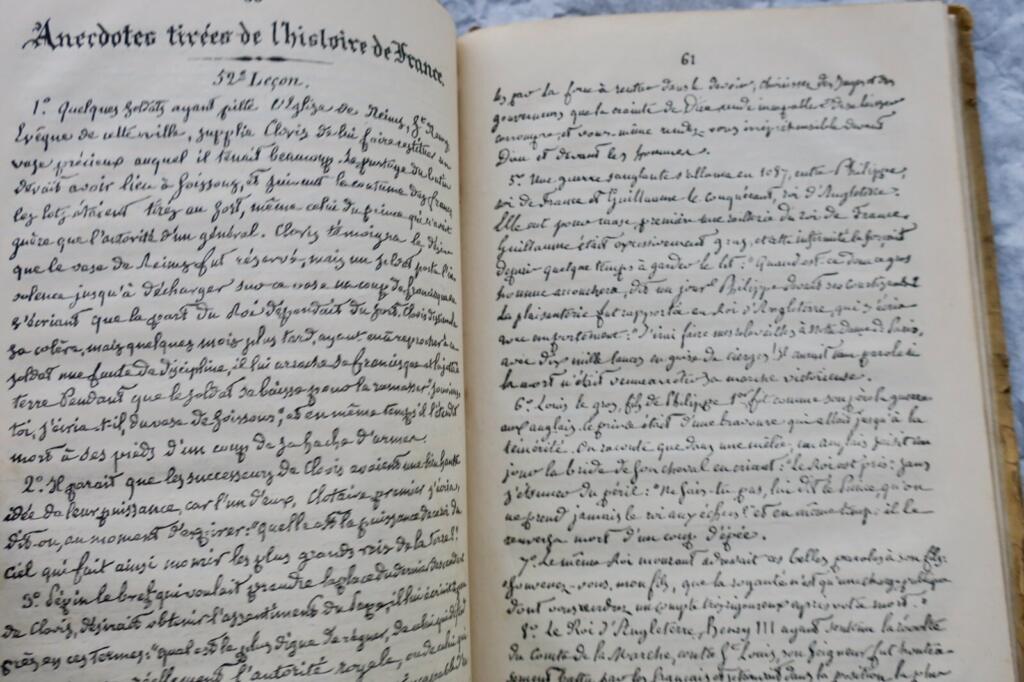 Anecdotes tirées de l'histoire de France.
52e Leçon.
1º. Quelques soldats ayant pillé l'Eglise de Reims, St Remy
Evêque de cette ville, supplia Clovis de lui faire restituer un
vase précieux auquel il tenait beaucoup. Le partage du butin
devait avoir lieu à Soissons, et suivant la coutume des francs
les lots étaient tirés au sort, même celui du prince qui n'avait
guère que l'autorité d'un général. Clovis témoigna le désir
que le vase de Reims fut réservé, mais un soldat porta l'in
solence jusqu'à décharger sur ce vase un coup de francisque en
s'écriant que la part du Roi dépendait du sort. Clovis
sa colère, mais quelques mois plus tard, ayant à reprocher à ce
soldat une faute de discipline, il lui arracha sa francisque et la jeta à
terre Pendant que le soldat se baisse pour la ramasser "Souviens
toi, s'écria-t-il, du vase de Soissons", et en même temps il l'étendit
mort à ses pieds d'un coup de sa hache d'armes.
2º. Il parait que les successeurs de Clovis avaient une bien haute
idée de leur puissance, car l'un d'eux, Clotaire premier s'écria,
dit-on, au moment d'expirer: "quelle est la puissance de ce roi du
Ciel qui fait ainsi mourir les plus grands rois de la terre!
3º. Pépin le bref qui voulait prendre la place du dernier
de Clovis, désirait obtenir l'assentiment du pape, il lui écrivit
en ces termes: "quel est le plus digne de régner, de celui qui
réellement l'autorité royale, ou de celui qui
61
les par la force à rentrer dans le devoir, choisissez des juges et des
gouverneurs que la crainte de Dieu rende incapables de se laisser
corrompre, et vous-même rendez vous irrépréhensible devant
Dieu et devant les hommes.
5º. Une guerre sanglante s'alluma en 1087, entre Philippe,
roi de France et Guillaume le conquérant, roi d'Angleterre.
Elle eut pour cause première une raillerie du roi de France.
Guillaume était excessivement gras, et cette infirmité le forçait
depuis quelque temps à garder le lit: "Quand est-ce donc ce gros
homme accouchera, dit un jour Philippe devant ses courtisans?
La plaisanterie fut rapportée au Roi d'Angleterre, qui s'écria
avec emportement: "J'irai faire mes relevailles à Notre dame de Paris,
avec dix mille lances en guise de cierges! Il aurait tenu parole si
la mort n'était venue arrêter sa marche victorieuse.
6º. Louis le gros, fils de Philippe 1er fit comme son père la guerre
aux anglais. le prince était d'une bravoure qui allait jusqu'à la
témérité. On raconte que dans une mêlée, un anglais saisit un
jour la bride de son cheval en criant: "Le Roi est pris: sans
s'étonner du péril: "Ne sais-tu pas, lui dit le prince, qu'on
ne prend jamais le roi aux échecs! et en même temps il le
renversa mort d'un coup d'épée.
7º. Le même Roi mourant adressait ces belles paroles à son fils:
"Souvenez-vous, mon fils, que la royauté n'est qu'une charge publique
dont vous rendrez un compte très rigoureux après votre mort."
8º. Le Roi d'Angleterre, Henry III ayant soutenu la révolte
du Comte de la Marche, contre St Louis, son Seigneur fut
battu par les français et